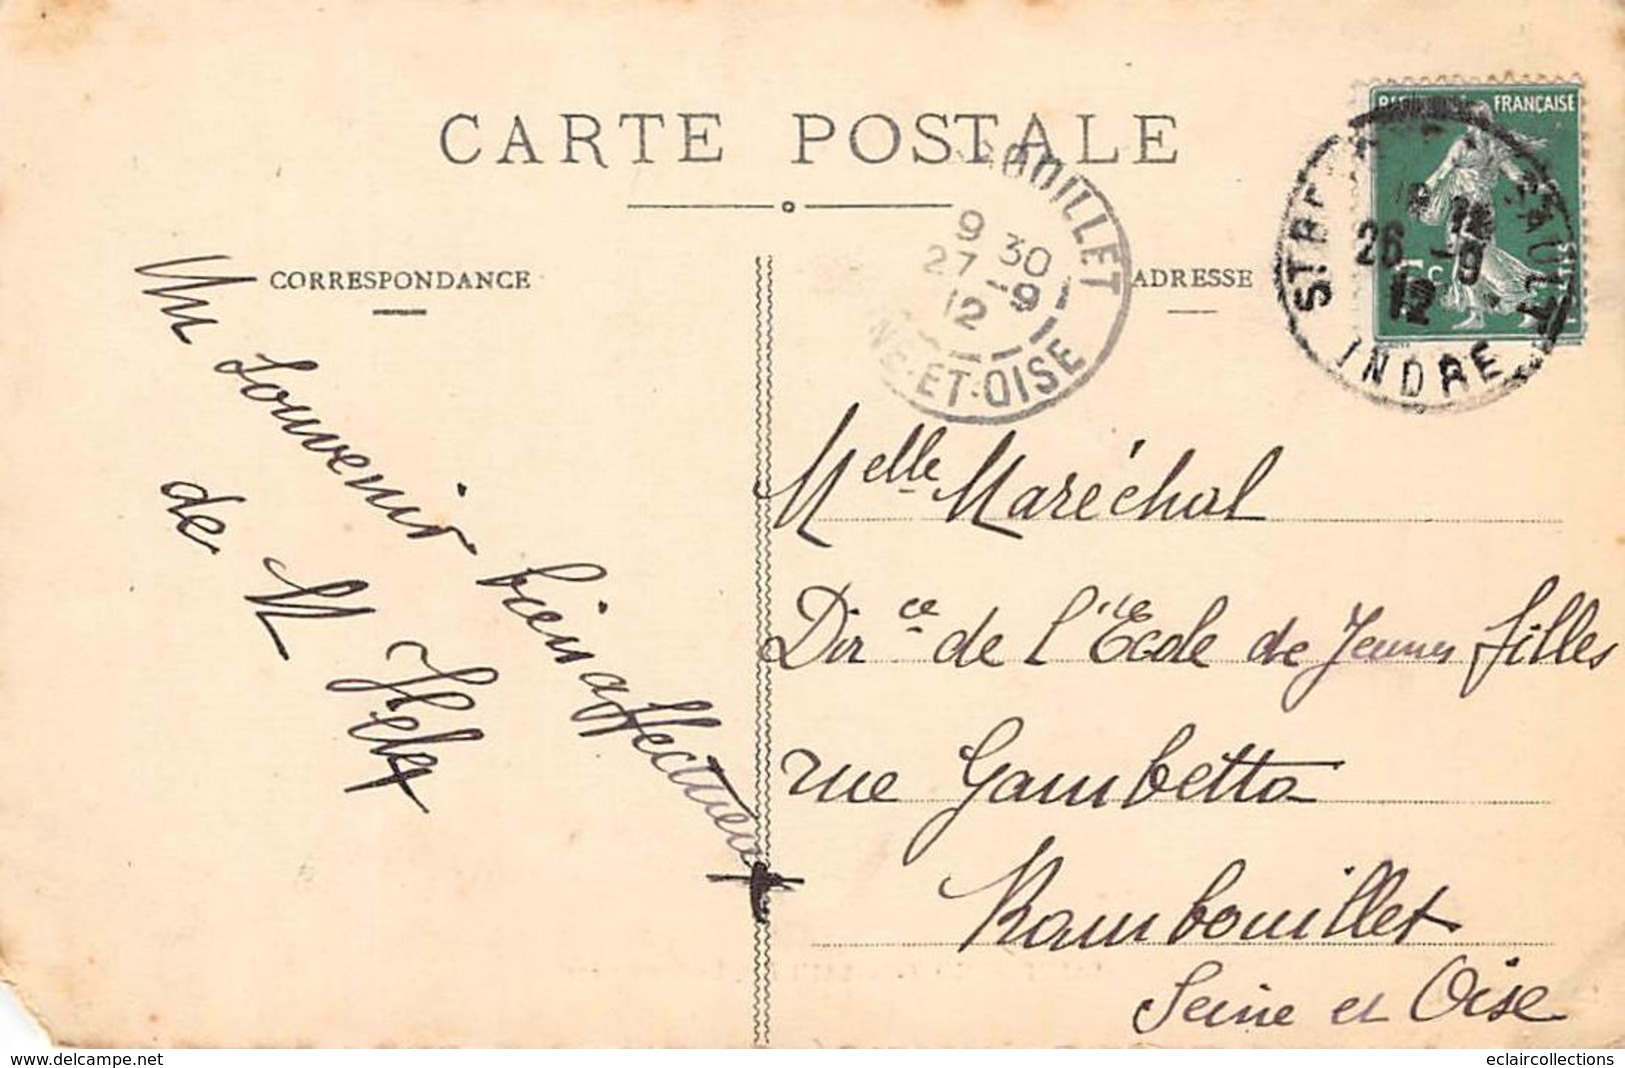 CARTE POSTALE
CORRESPONDANCE
ADRESSE
FRANÇAISE
INDRE
26 -9
12
9 30
27 -9
12
ET-OISE
Un souvenir bien affectueux
de M
Melle Maréchal
Dirce de l'Ecole de Jeunes filles
rue Gambetta
Rambouillet
Seine et Oise
delcampe.net
eclaircollections